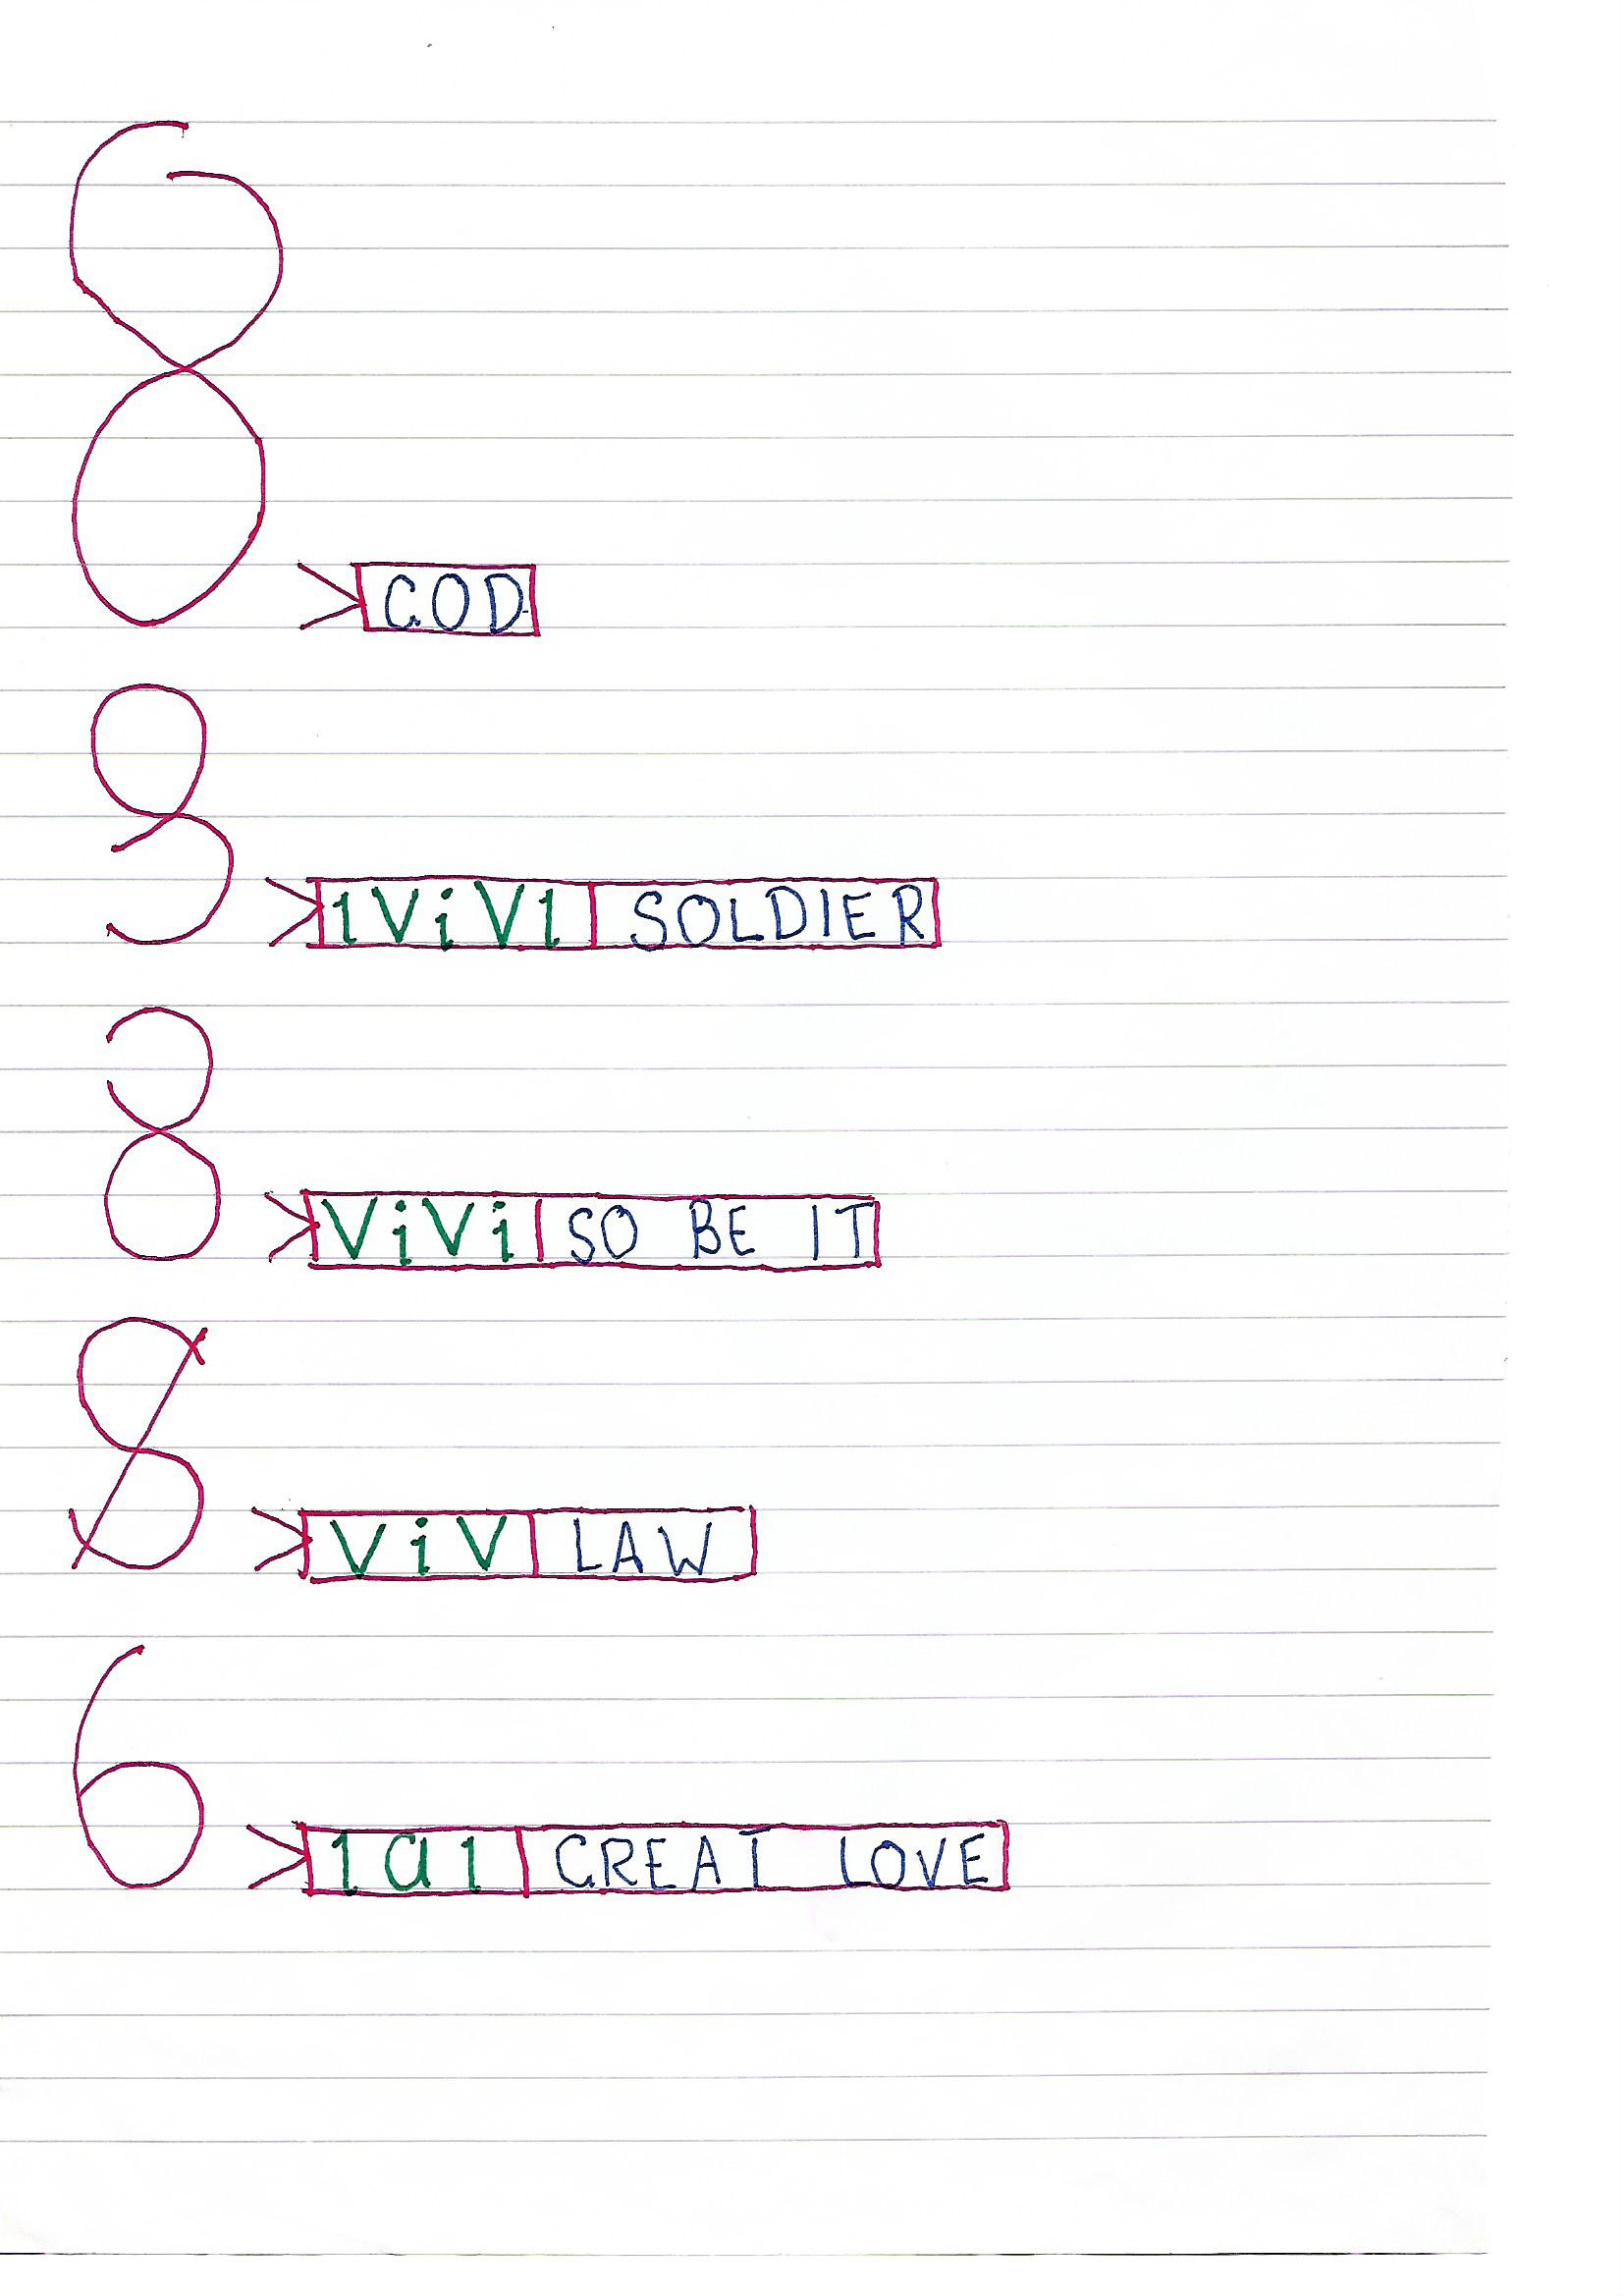 GOD
1ViV1 SOLDIER
ViVi SO BE IT
ViV LAW
6 1a1 GREAT LOVE